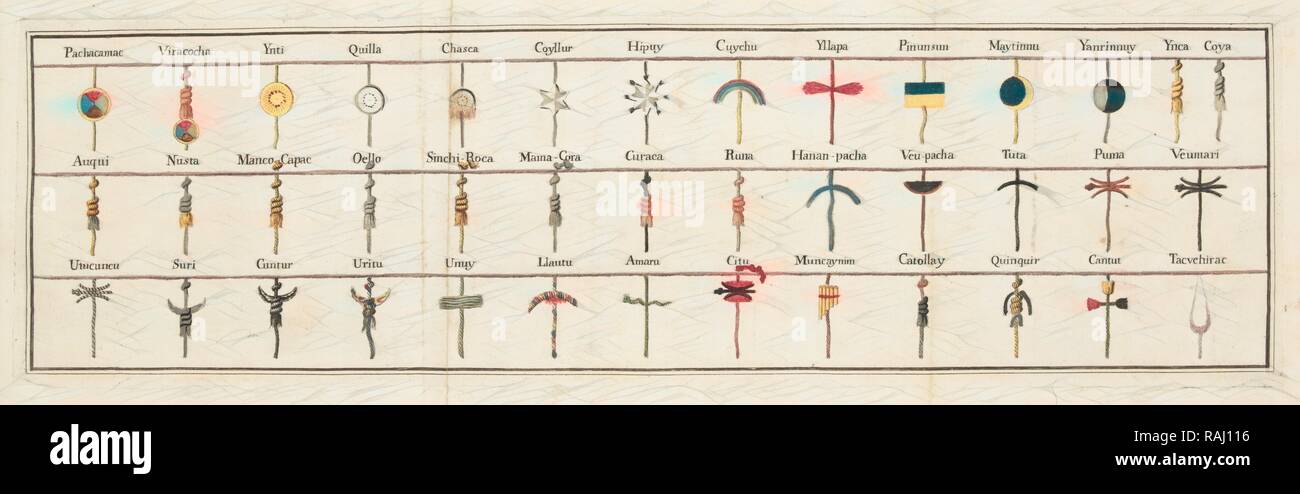 Pachacamac Viracocha Ynti Quilla Chasca Coyllur Hipuy Cuychu Yllapa Pinunsun Maytinnu Yanrinnuy Ynca Coya
Auqui Nusta Manco-Capac Oello Sinchi-Roca Mama-Cora Curaca Runa Hanan-pacha Veu-pacha Tuta Puma Veumari
Unicuncu Suri Cuntur Uritu Unuy Llautu Amaru Citu Muncaynim Catollay Quinquir Cantut Tacvehirac
alamy
Image ID: RAJ116
www.alamy.com